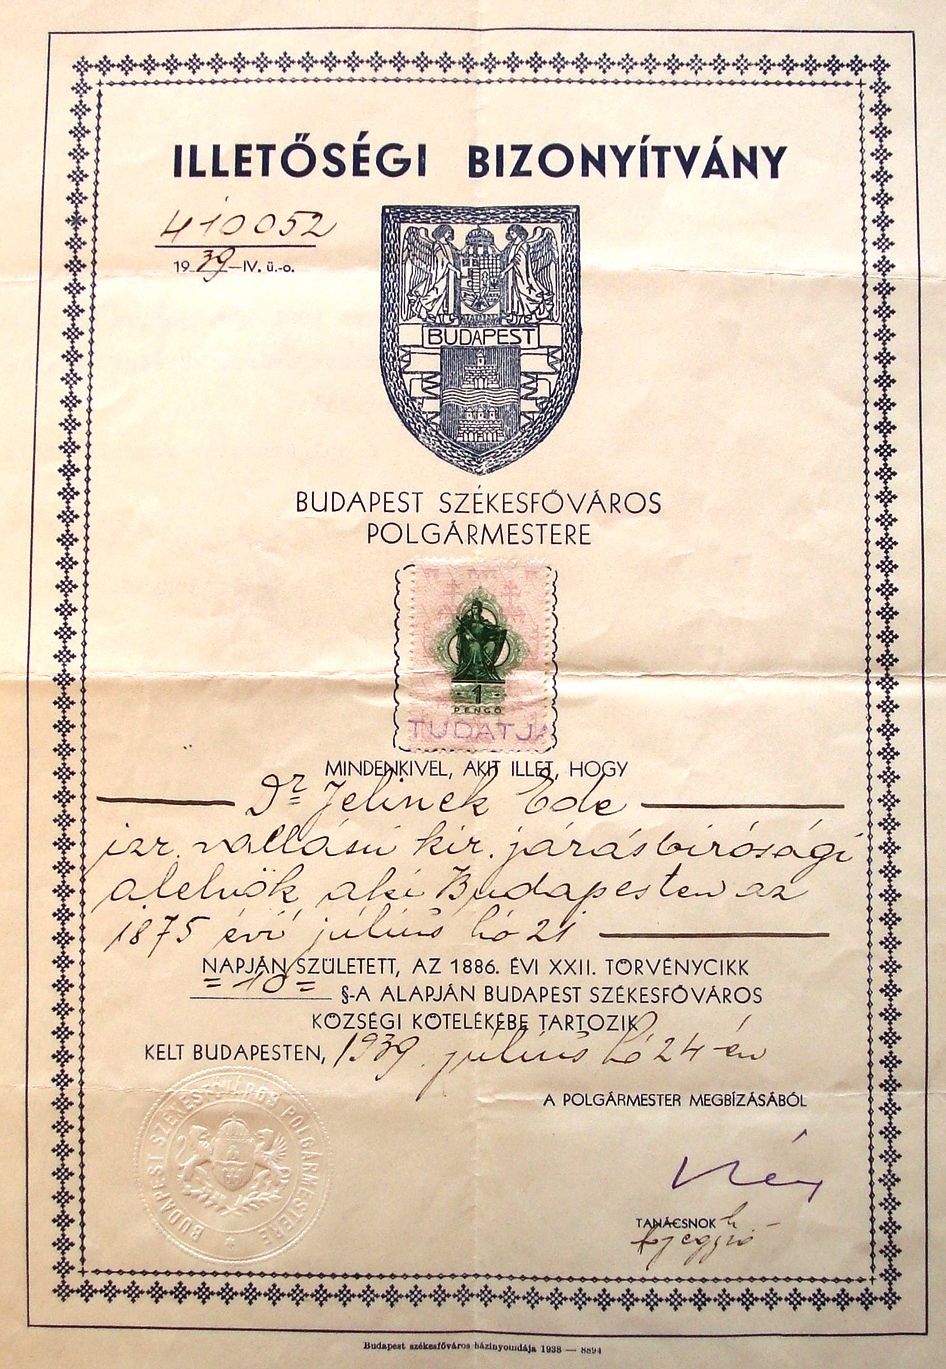 ILLETŐSÉGI BIZONYÍTVÁNY
410052
1939—IV. ü.-o.
BUDAPEST
BUDAPEST SZÉKESFŐVÁROS
POLGÁRMESTERE
1
PENGŐ
TUDATJA
MINDENKIVEL, AKIT ILLET, HOGY
Dr Jelinek Ede
izr. vallású kir. járásbírósági
alelnök aki Budapesten az
1875 évi július hó 21
NAPJÁN SZÜLETETT, AZ 1886. ÉVI XXII. TÖRVÉNYCIKK
=10= §-A ALAPJÁN BUDAPEST SZÉKESFŐVÁROS
KÖZSÉGI KÖTELÉKÉBE TARTOZIK
KELT BUDAPESTEN, 1939. július hó 24-én
A POLGÁRMESTER MEGBÍZÁSÁBÓL
BUDAPEST SZÉKESFŐVÁROS POLGÁRMESTERE
TANÁCSNOK h.
Budapest székesfőváros házinyomdája 1938 — 8894